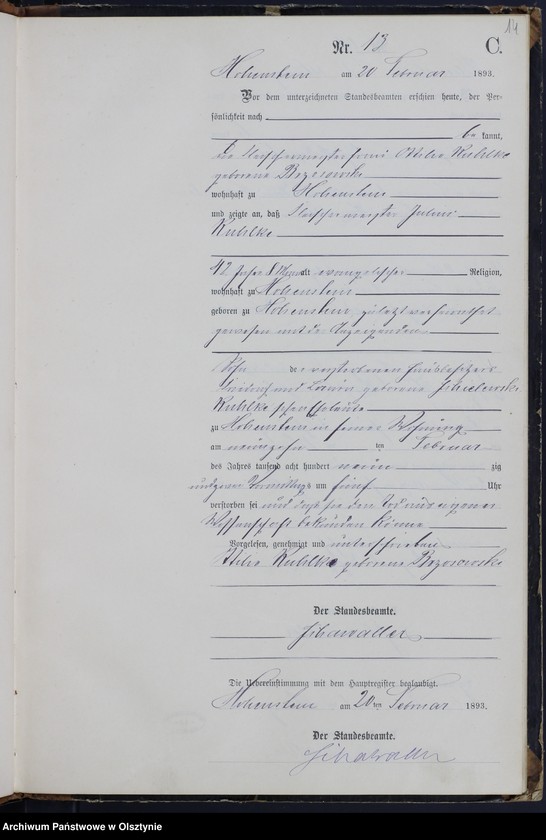 14
Nr. 13 C.
Hohenstein am 20 Februar 1893.
Vor dem unterzeichneten Standesbeamten erschien heute, der Per-
sönlichkeit nach
be kannt,
die Fleischermeisterfrau Ottilie Kuhlke
geborene Brzosowski
wohnhaft zu Hohenstein
und zeigte an, daß Fleischermeister Julius
Kuhlke
42 Jahre 8 Monat alt evangelischer Religion,
wohnhaft zu Hohenstein
geboren zu Hohenstein, zuletzt verheirathet
gewesen mit der Anzeigenden
Sohn der verstorbenen Hausbesitzer
Friedrich und geborene
Kuhlke schen Eheleute
zu Hohenstein in seiner Wohnung
am neunzehn ten Februar
des Jahres tausend acht hundert neun zig
und drei Vormittags um fünf Uhr
verstorben sei und daß sie den Tod aus eigener
Wissenschaft bekunden könne
Vorgelesen, genehmigt und unterschrieben
Ottilie Kuhlke geborene Brzosowski
Der Standesbeamte.
Die Uebereinstimmung mit dem Hauptregister beglaubigt.
Hohenstein am 20 ten Februar 1893.
Der Standesbeamte.
Archiwum Państwowe w Olsztynie